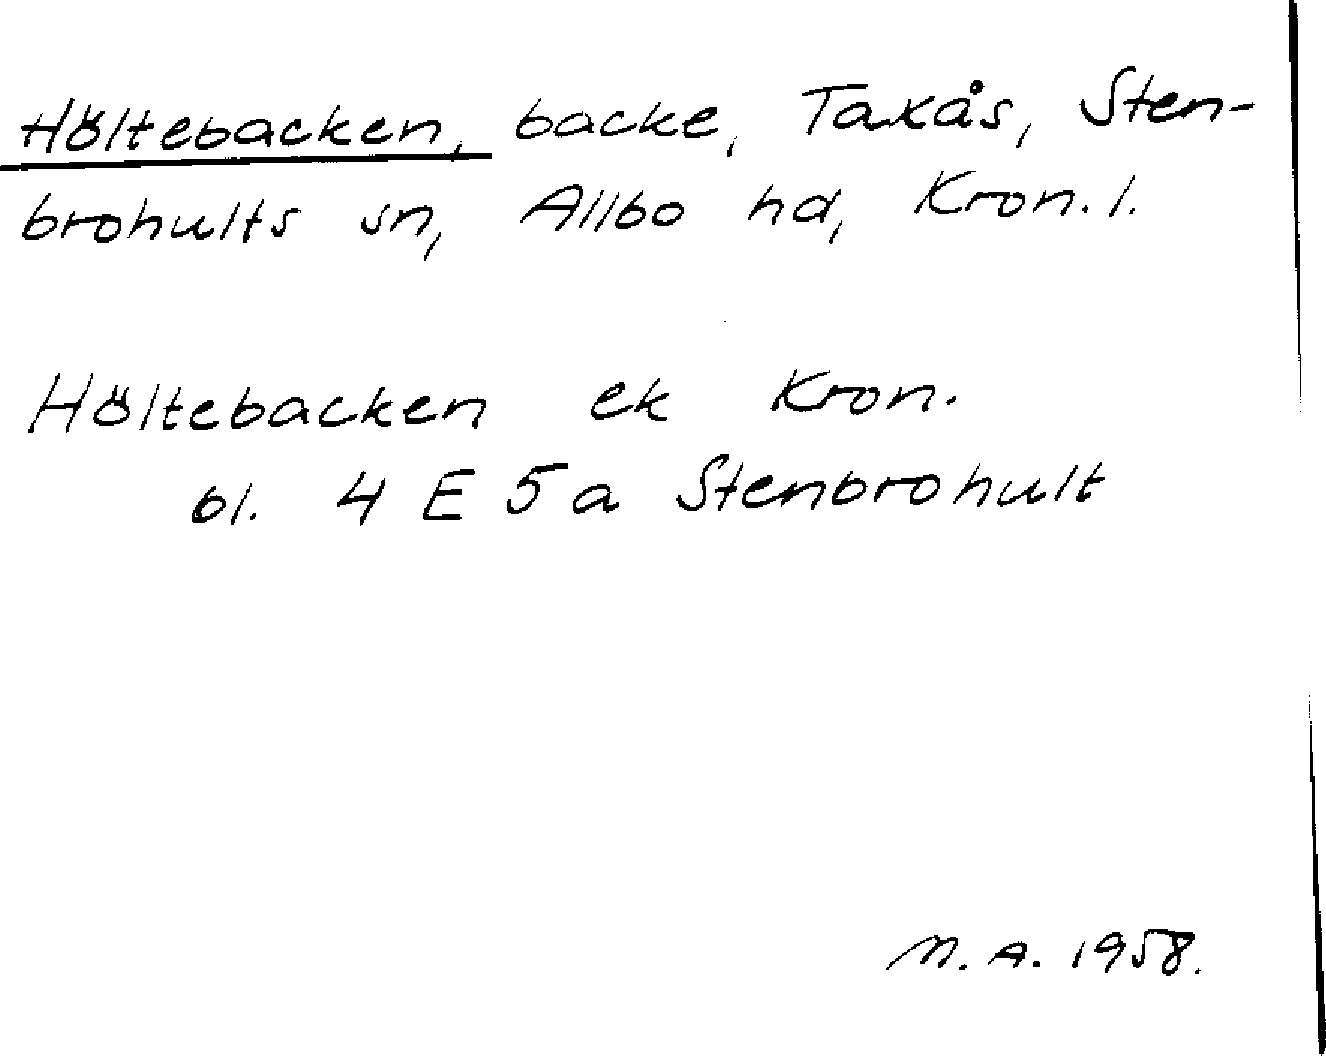 Höltebacken, backe, Taxås, Sten-
brohults sn, Allbo hd, Kron. l.
Höltebacken ek Kron.
bl. 4 E 5 a Stenbrohult
M. A. 1958.